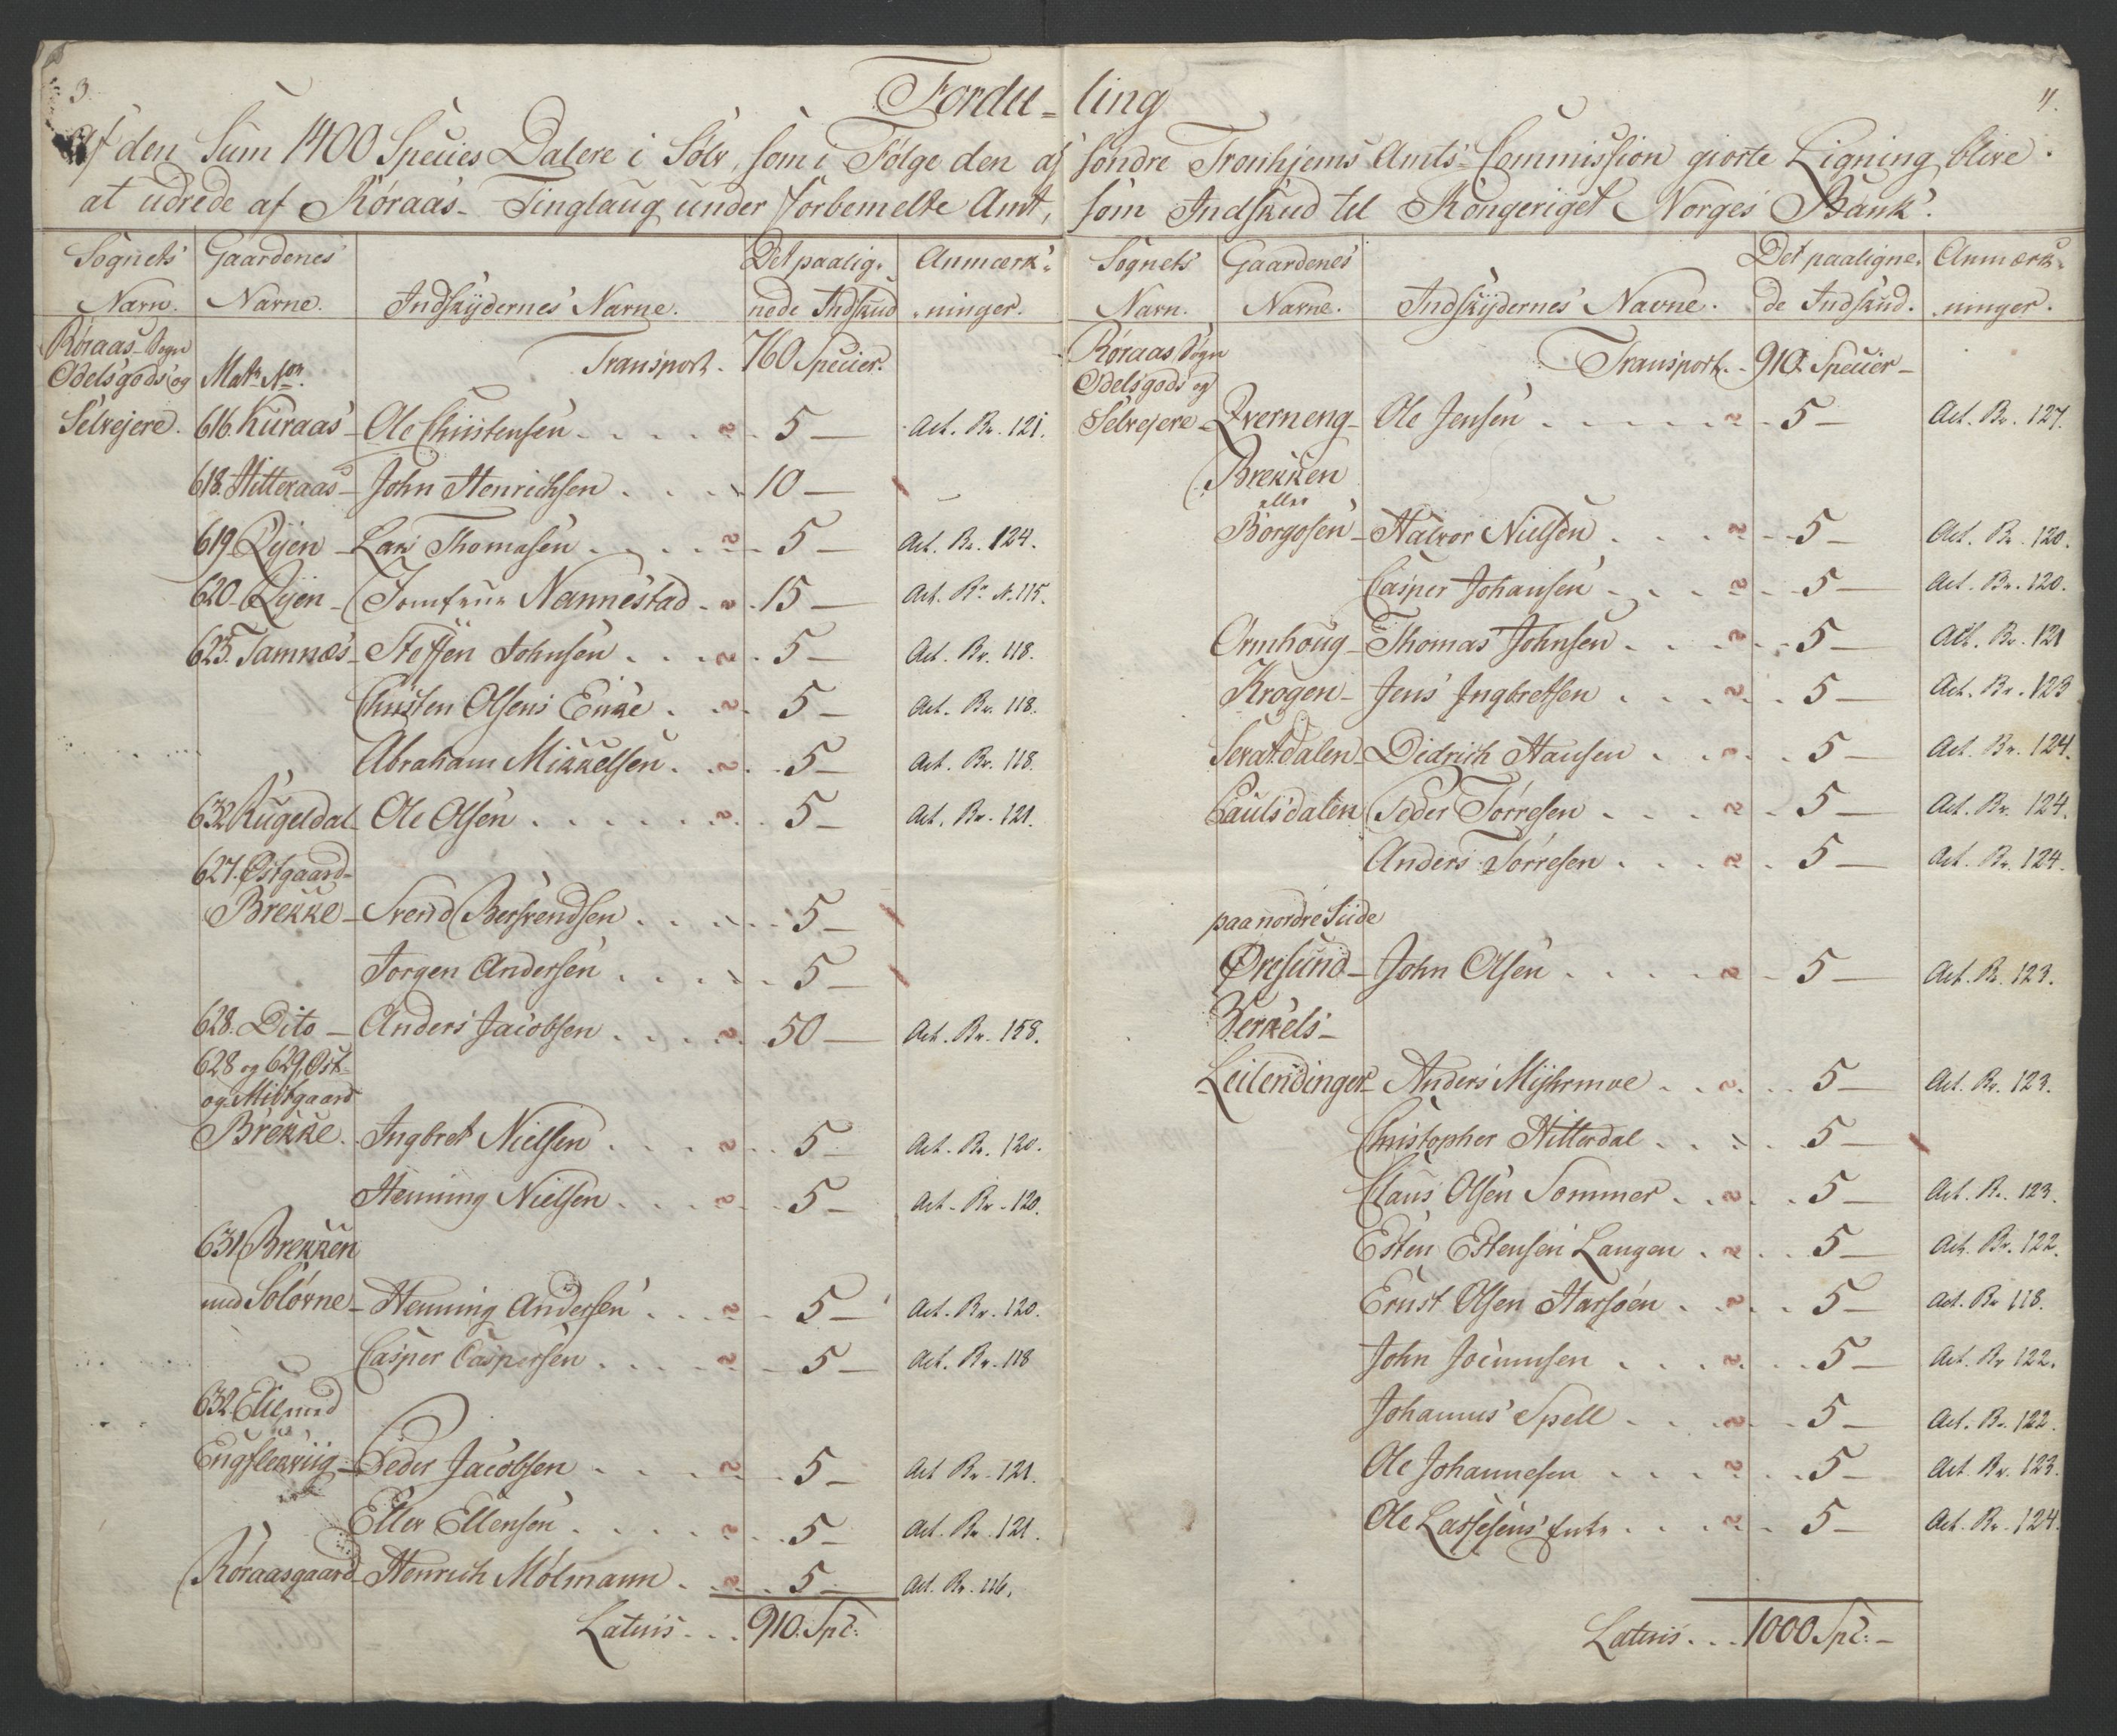 3.
Fordee-ling
4.
Af den Sum 1400 Species Dalere i Sølv, som i Følge den af søndre Tronhjems Amts-Commission giorte Ligning blive
at udrede af Røraas-Tinglaug under forbemelte Amt, som Indskud til Kongeriget Norges Bank.
Sognets Navn. Gaardenes Navne. Indskydernes Navne. Det paalignede Indskud Anmærkninger.
Røraas-Sogn
Odelsgods og Matr. Nor. Transport. 760 Specier.
Selvejere. 616. Kuraas - Ole Christensen . . . . 5 — Act. Br. 121.
618. Hitteraas - John Henrichsen . . . . 10 —
619. Øyen - Lars Thomasen . . . . 5 — Act. Br. 124.
620. Øyen - Jomfrue Nannestad . . 15 — Act. Br. N. 115.
625. Tamnæs - Steffen Johnsen . . . . 5 — Act. Br. 118.
Christen Olsens Enke . . . 5 — Act. Br. 118.
Abraham Mikkelsen . . . 5 — Act. Br. 118.
632 Kugeldal - Ole Olsen . . . . . 5 — Act. Br. 121.
627. Østgaard-
Brekke - Svend Bersvendsen . . . . 5 —
Jørgen Andersen . . . . 5 —
628. Dito — Anders Jacobsen . . . . 50 — Act. Br. 158.
628 og 629. Øst-
og Mistgaard
Brekke. Ingbret Nielsen . . . . 5 — Act. Br. 120.
Henning Nielsen . . . . 5 — Act. Br. 120.
631 Brekken
med Soløvne - Henning Andersen . . . . 5 — Act. Br. 120.
Casper Caspersen . . . . 5 — Act. Br. 118
632. med
Peder Jacobsen . . . . 5 — Act Br. 121.
Eller Ellensen . . . . 5 — Act. Br. 121.
Røraasgaard - Henrich Mølmann . . . . 5 — Act. Br. 116.
Lateris . . . 910. Spc:
Sognets Navn. Gaardenes Navne. Indskydernes Navne. Det paalignede Indskud. Anmærkninger.
Røraas Sogn Transport . . 910. Specier —
Odelsgods og
Selvejere - Qverneng - Ole Jensen . . . . 5 — Act. Br. 127.
Brekken
eller
Borgosen - Halvor Nielsen . . . . 5 — Act. Br. 120.
Casper Johansen . . . . 5 — Act. Br. 120.
Ormhoug - Thomas Johnsen . . . . 5 — Act. Br. 121
Krogen - Jens Ingbretsen . . . . 5 — Act. Br. 123
Sevatdalen - Didrich Hansen . . . . 5 — Act. Br. 124.
Paulsdalen Peder Tørresen . . . . 5 — Act. Br. 124.
Anders Tørresen . . . . 5 — Act. Br. 124.
paa nordre Siide
Øresund - John Olsen . . . . 5 — Act. Br. 123.
Verkets-
Leilendinger - Anders Myhrmoe . . . . 5 — Act. Br. 123.
Christopher Hitterdal . . . . 5 —
Claus Olsen Sommer . . . . 5 — Act. Br. 123.
Esten Estensen Langen . . . 5 — Act. Br. 122.
Ernst Olsen Harsøen . . . . 5 — Act. Br 118.
John Jocumsen . . . . 5 — Act. Br 122.
Johannes Spell . . . . 5 — Act. Br. 122.
Ole Johannesen . . . . 5 — Act. Br. 123.
Ole Lassesens Enke . . . . 5 — Act. Br. 124.
Lateris . . . 1000 Spc: —